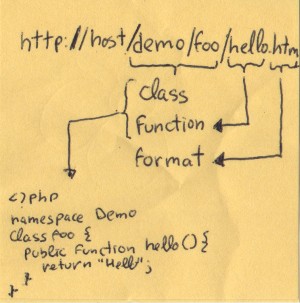 http://host/demo/foo/hello.htm
class
function
format
<?php
namespace Demo
class foo {
public function hello() {
return "Hello";
}
}